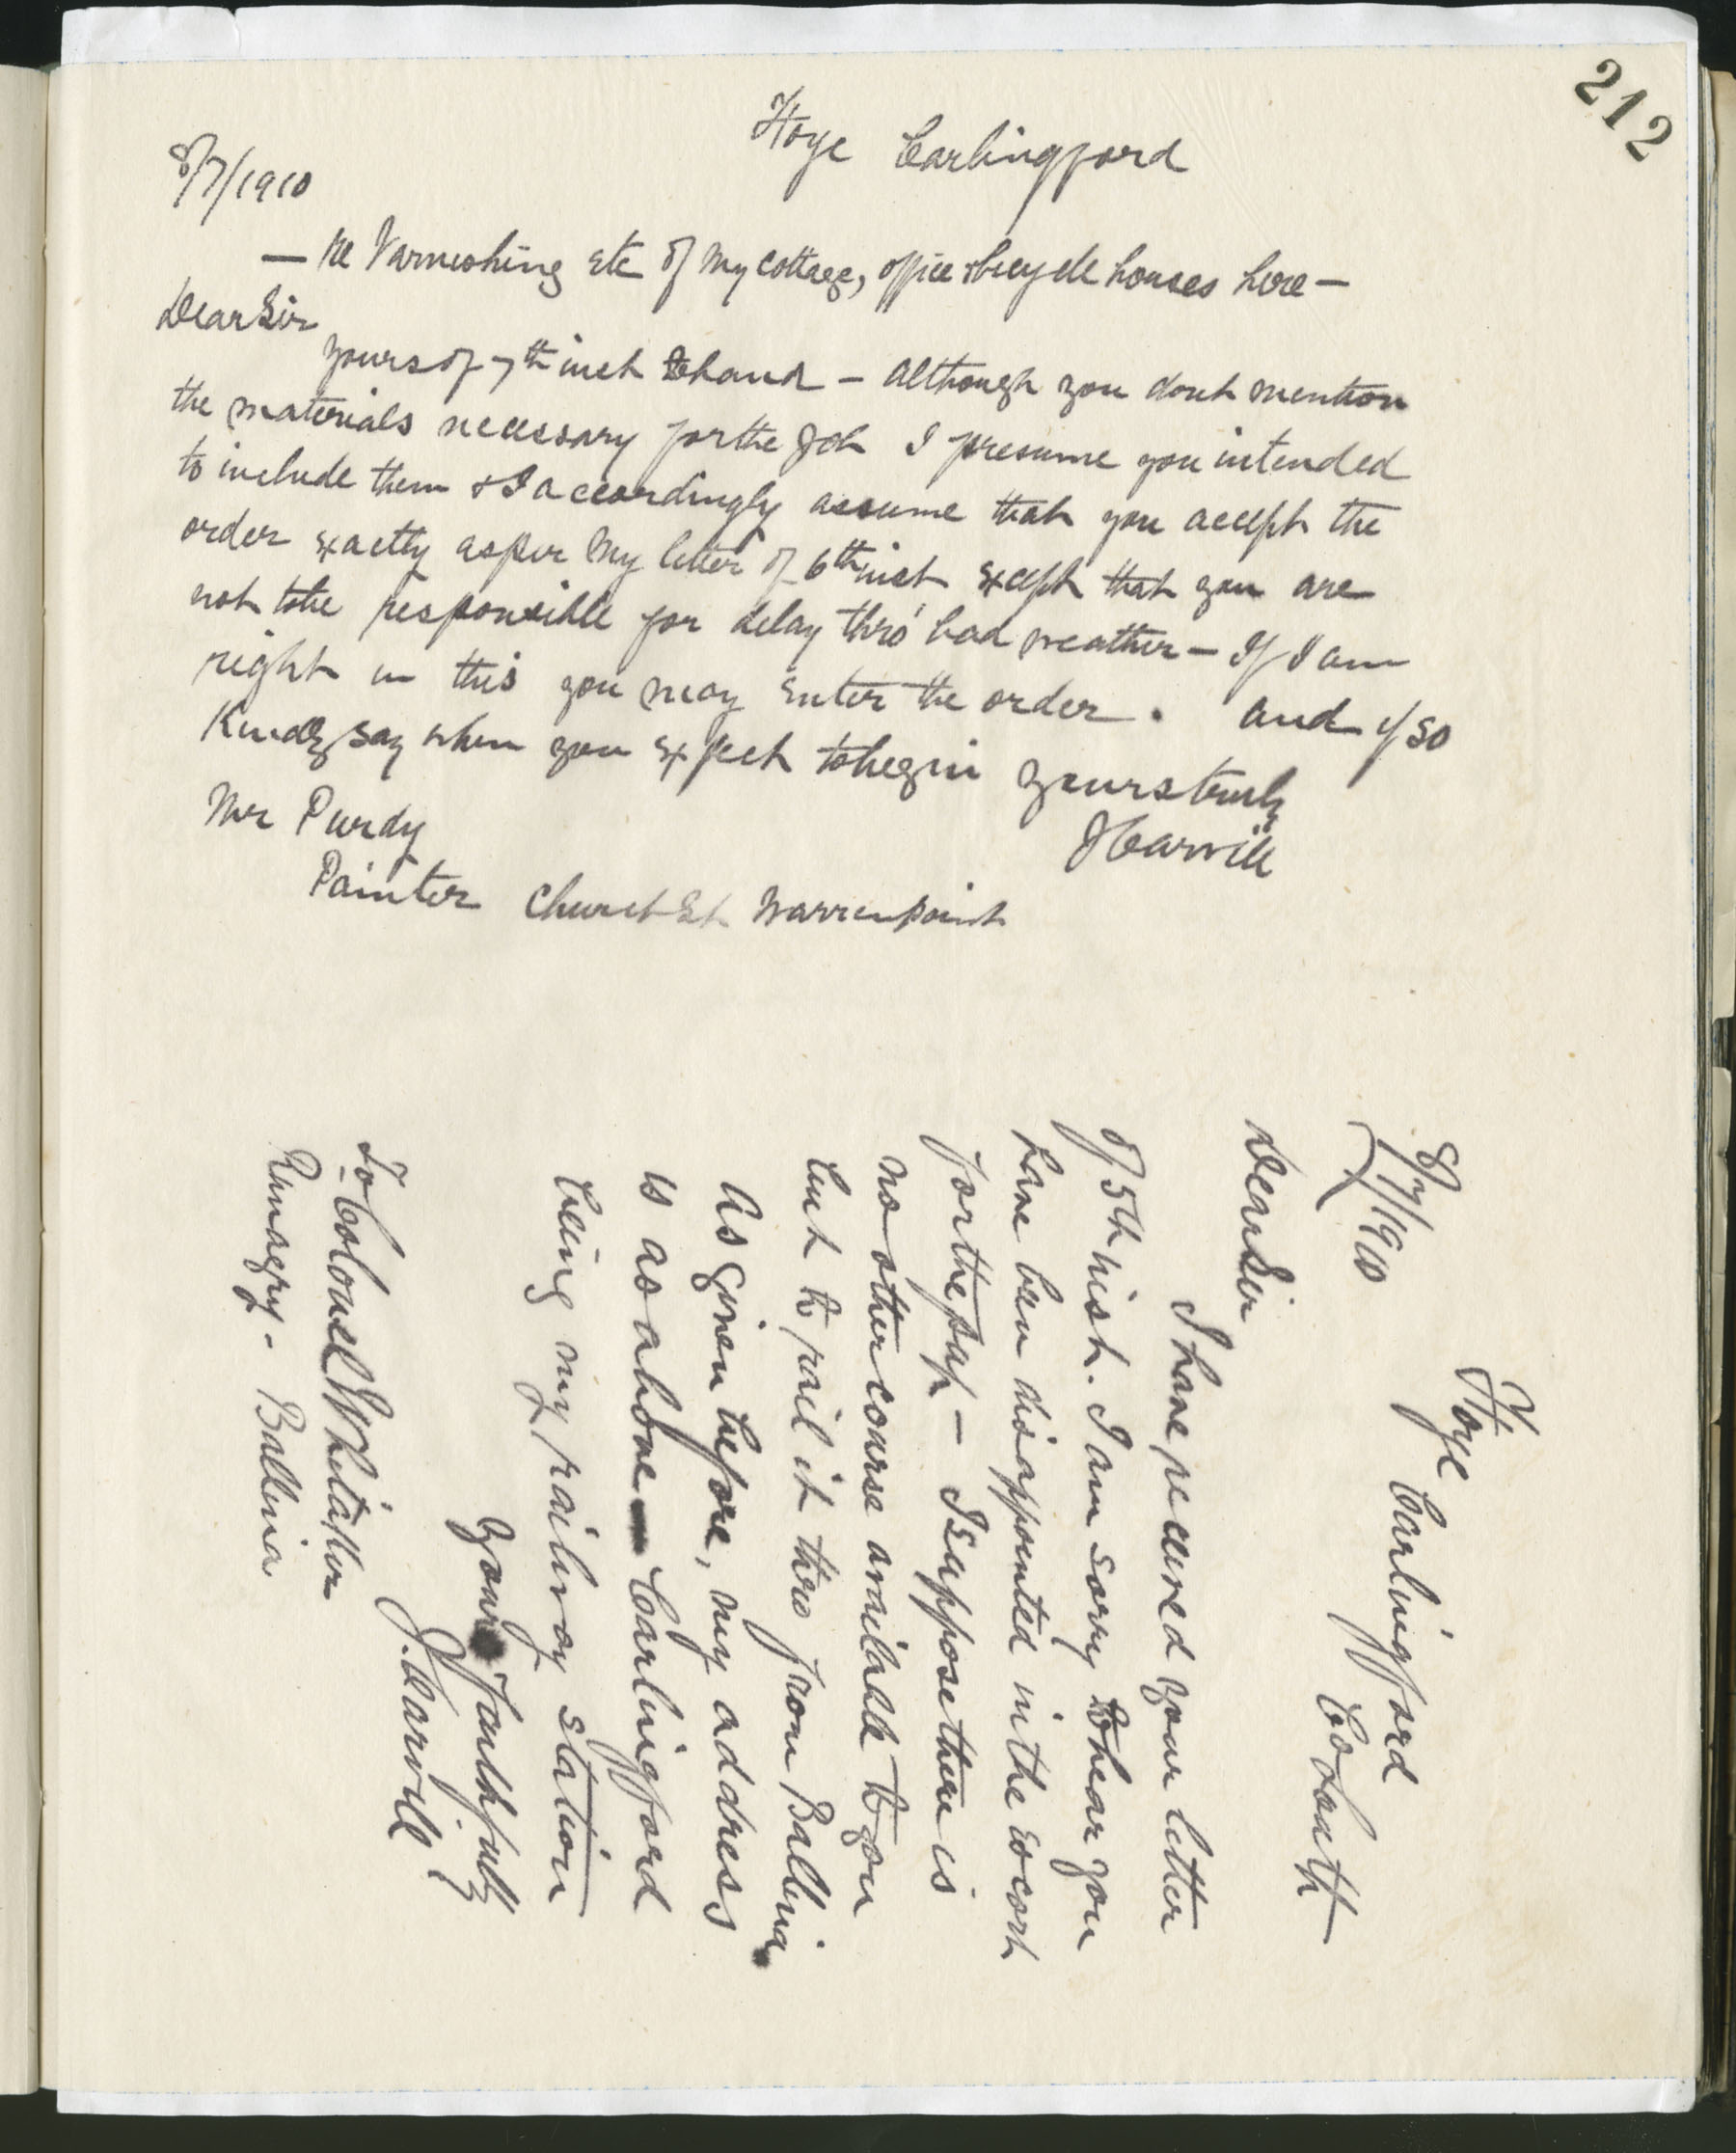 212
Hoye Carlingford
8/7/1910
— Re Varnishing etc of my cottage, office & bicycle houses here —
Dear Sir
yours of 7th inst to hand — although you dont mention
the materials necessary for the job I presume you intended
to include them & I accordingly assume that you accept the
order exactly as per my letter of 6th inst except that you are
not to be responsible for delay thro' bad weather — If I am
right in this you may enter the order. and if so
Kindly say when you expect to begin yours truly
Mr Purdy
J Carvill
Painter Church St Warrenpoint
Hoye Carlingford
8/7/1910 Co Louth
Dear Sir
I have received your letter
of 5th inst. I am sorry to hear you
have been disappointed in the escort
for the pup — I suppose there is
no other course available to you
but to rail it thro from Ballina
As given before, my address
is as above — Carlingford
being my railway station
yours faithfully
J. Carvill
To Colonel Whitaker
- Ballina